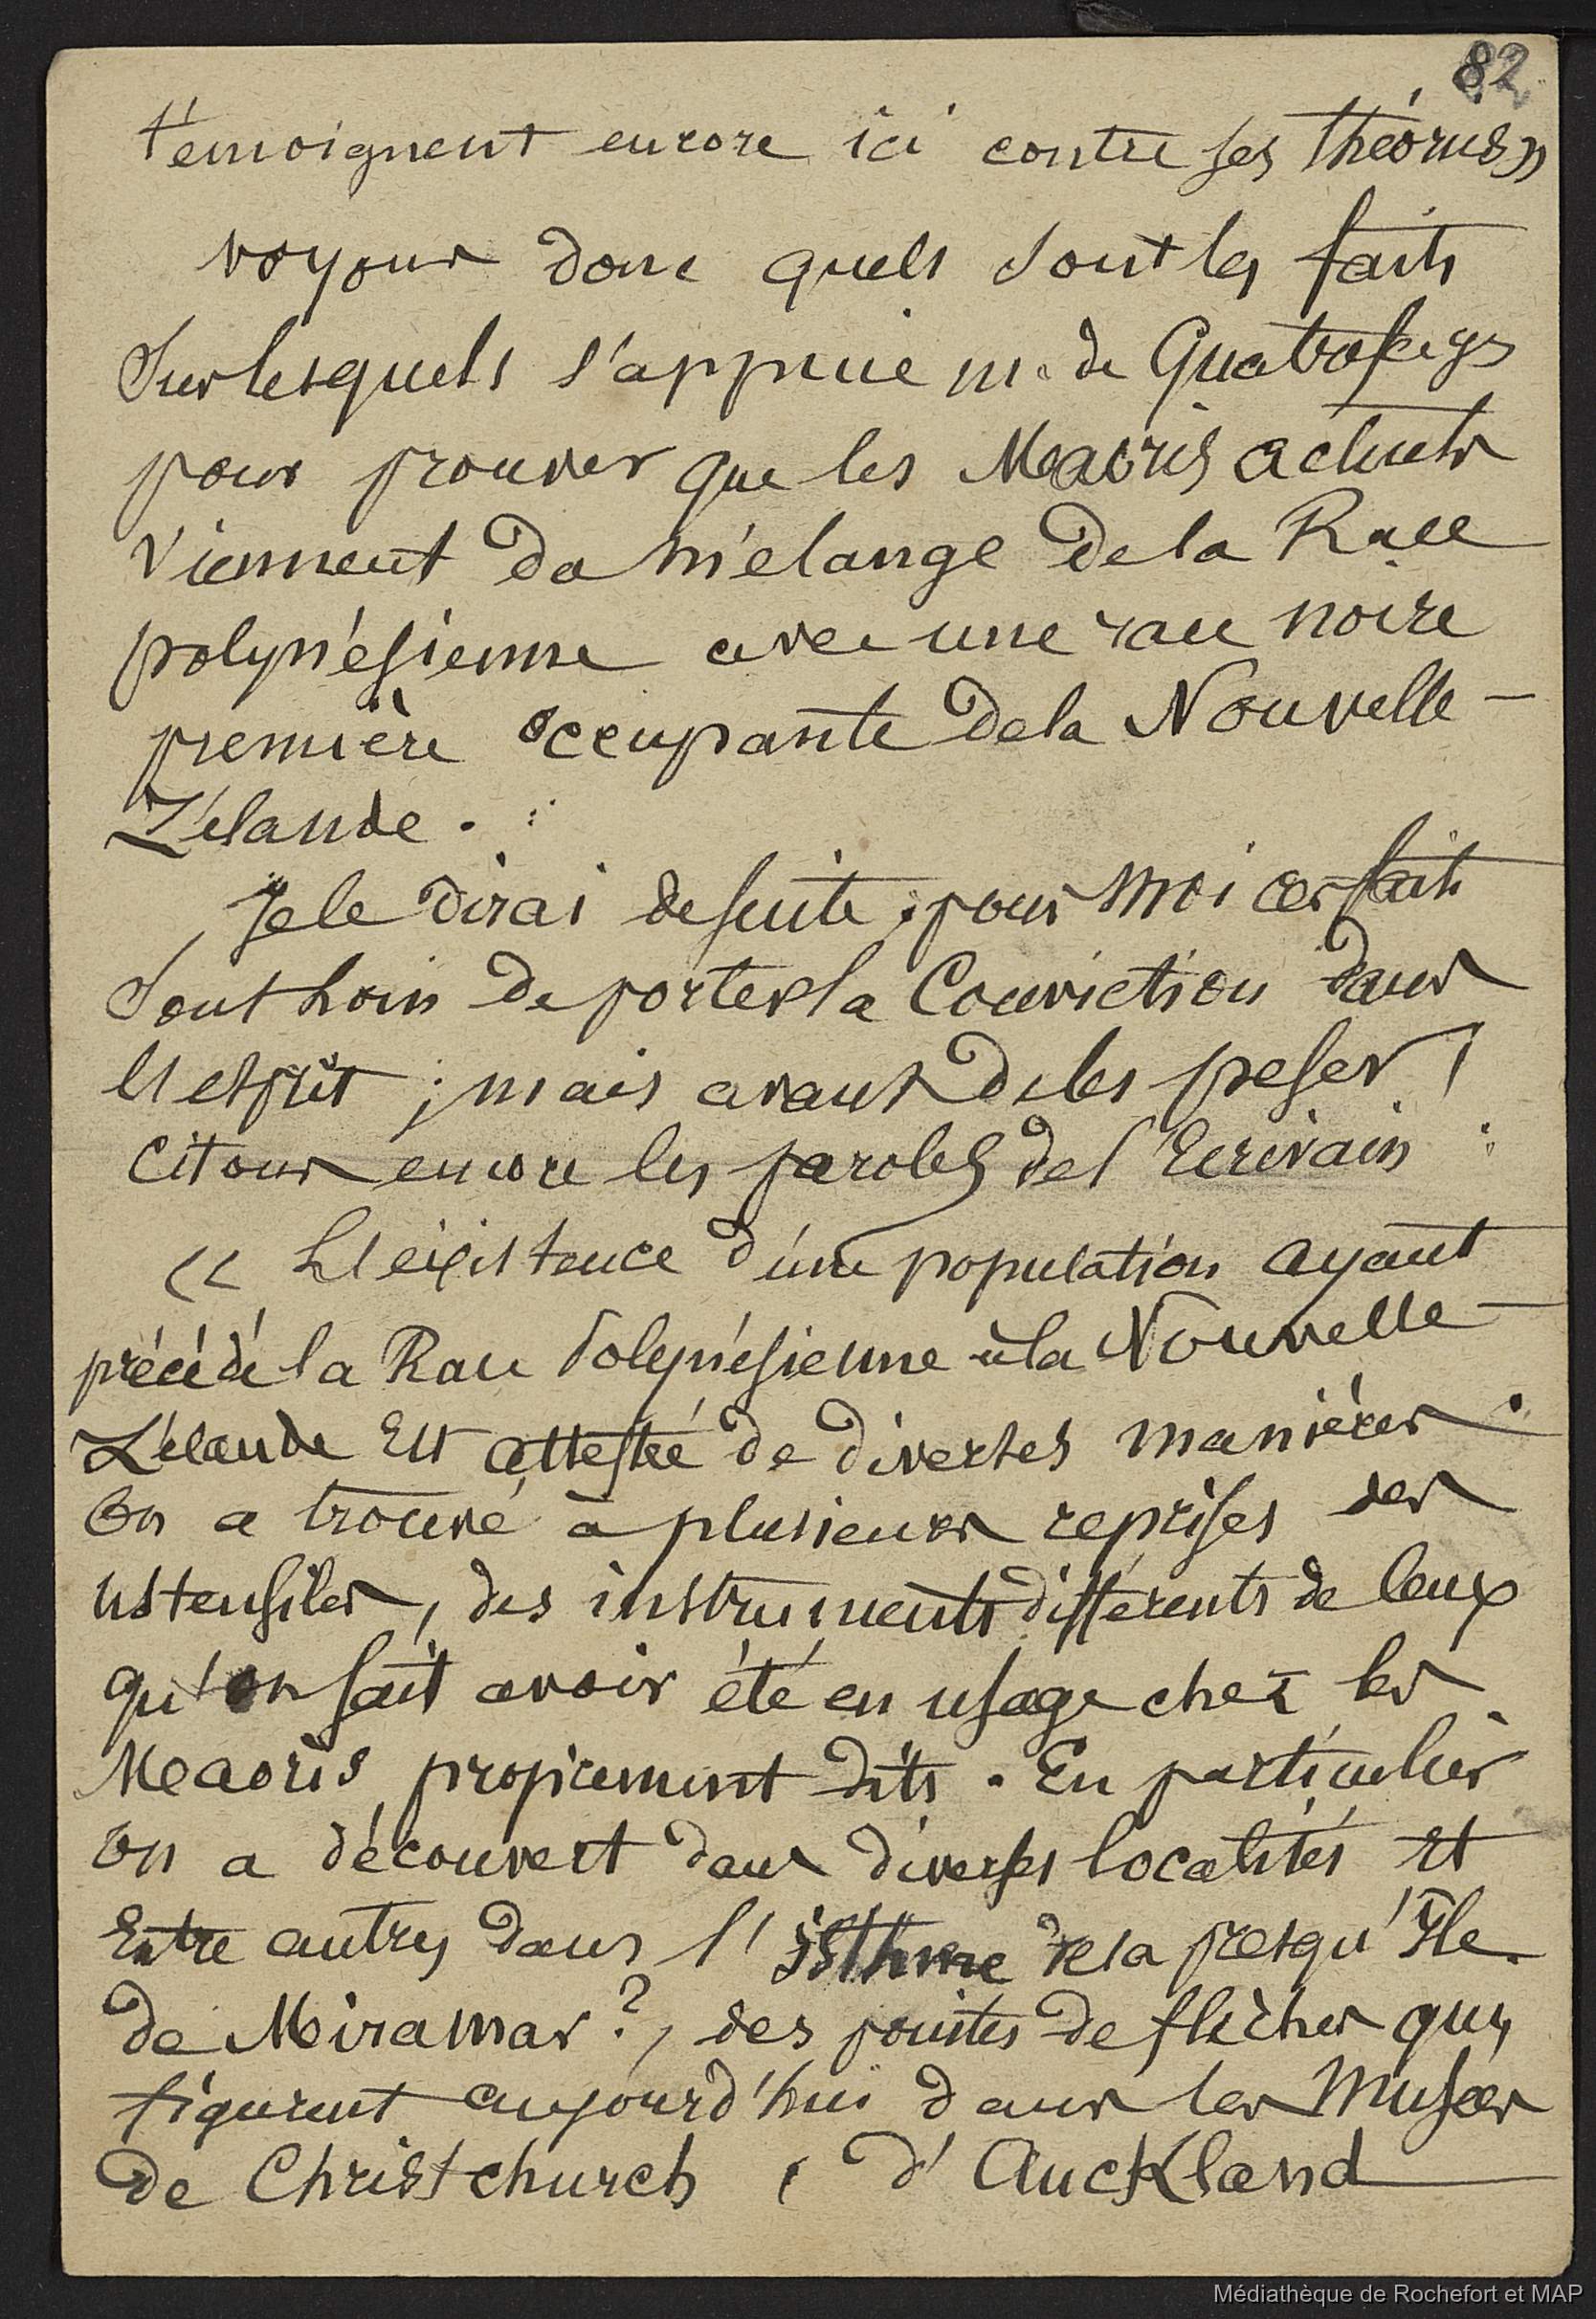 82
témoignent encore ici contre ses théories »
voyons donc quels sont les faits
sur lesquels s'appuie m. de Quatrefages
pour prouver que les Maoris actuels
viennent du mélange de la Race
polynésienne avec une race noire
première occupante de la Nouvelle-
Zélande.
Je le dirai de suite, pour moi ces faits
sont loin de porter la Conviction dans
l'esprit ; mais avant de les peser,
citons encore les paroles de l'Ecrivain :
« L'existence d'une population ayant
précédé la Race Polynésienne à la Nouvelle-
Zélande Est attestée de diverses manières.
On a trouvé à plusieurs reprises des
ustensiles, des instruments différents de ceux
qu'on sait avoir été en usage chez les
Maoris proprement dits. En particulier
on a découvert dans diverses localités et
Entre autres dans l'isthme de la presqu'Ile
de Miramar ?, des pointes de flèches qui,
figurent aujourd'hui dans les Musées
de Christchurch, d'Auckland
Médiathèque de Rochefort et MAP